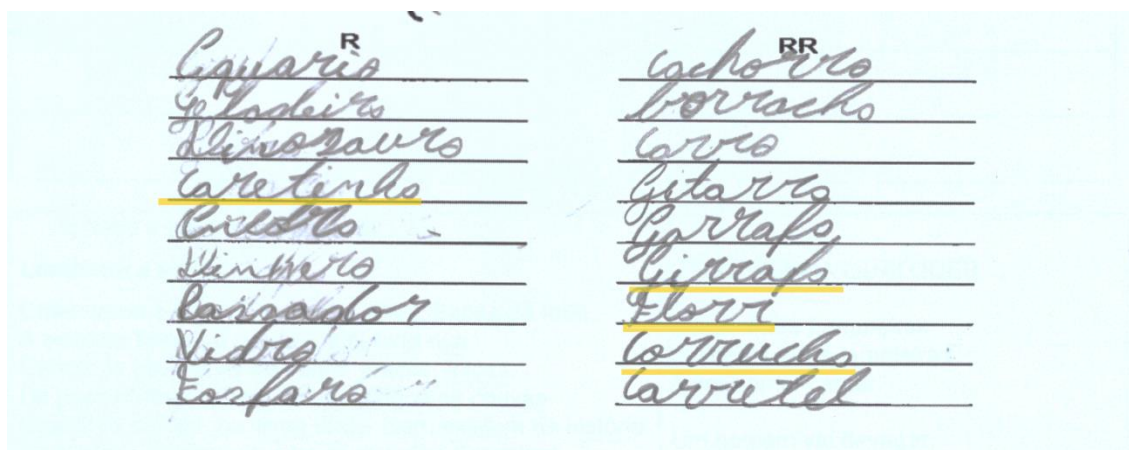 R
Aquario
Geladeira
Dinozauro
Caretinha
Dinhero
Vidro
Fosfaro
RR
Cachorro
borracha
Carro
Gitarra
Garrafa
Girrafa
Florri
Carrucha
Carretel